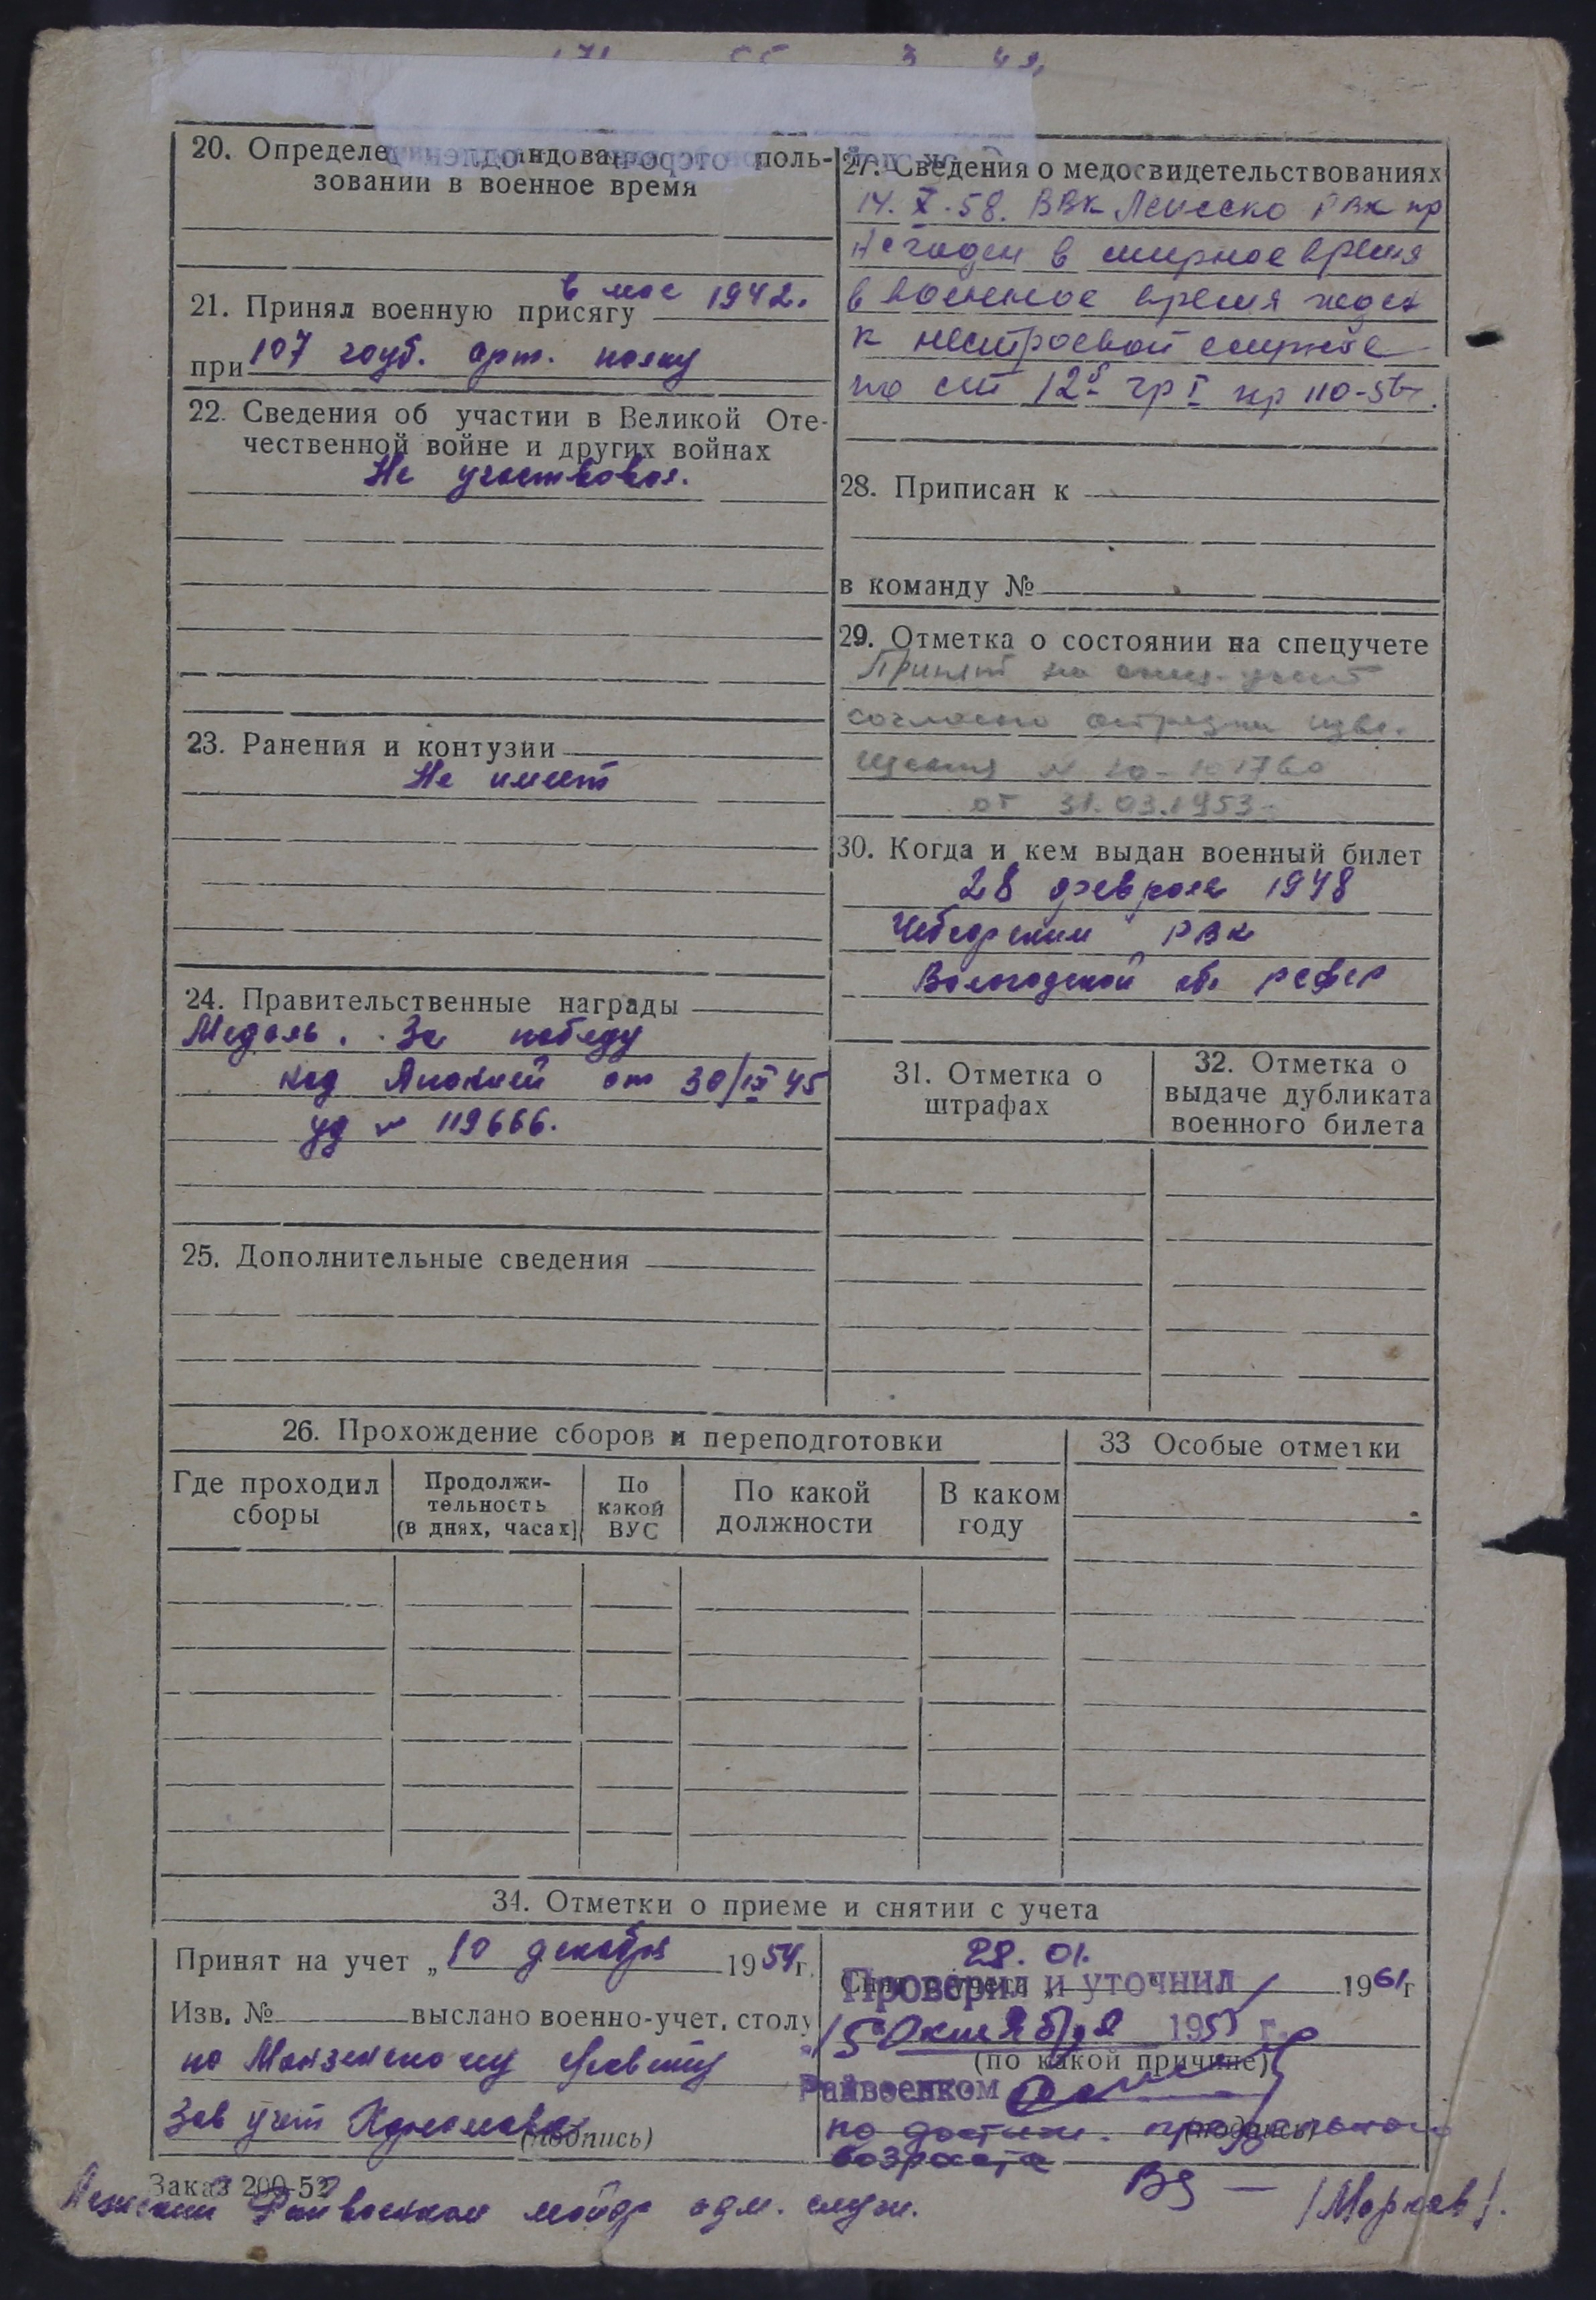 20. Определе
поль-
зовании в военное время
21. Принял военную присягу в мае 1942.
при 107 гауб. арт. полку
22. Сведения об участии в Великой Оте-
чественной войне и других войнах
Не участвовал.
23. Ранения и контузии
Не имеет
24. Правительственные награды
Медаль. За победу
над Японией от 30/IX 45
уд № 119666.
25. Дополнительные сведения
27. Сведения о медосвидетельствованиях
14. X. 58. ВВК РВК пр
Не годен в мирное время
в военное время годен
к нестроевой службе
по ст 12б гр I пр 110-56г.
28. Приписан к
в команду №
29. Отметка о состоянии на спецучете
Принят на спец. учет
согласно отрезки изве-
щения №
от 31.03.1953
30. Когда и кем выдан военный билет
28 февраля 1948
РВК
Вологодской обл РСФСР
31. Отметка о
штрафах
32. Отметка о
выдаче дубликата
военного билета
26. Прохождение сборов и переподготовки
Где проходил
сборы
Продолжи-
тельность
(в днях, часах)
По
какой
ВУС
По какой
должности
В каком
году
33 Особые отметки
34. Отметки о приеме и снятии с учета
Принят на учет „10 декабря 1954г.
Изв. № выслано военно-учет. столу
по совету
Зав учет
(подпись)
28. 01. 1961г
Проверил и уточнил
15 Октября 1955 г.
(по какой причине)
Райвоенком
по достиж. предельного
(подпись)
возраста
Заказ 200-52
Райвоенком майор адм. служ. /Марков/.